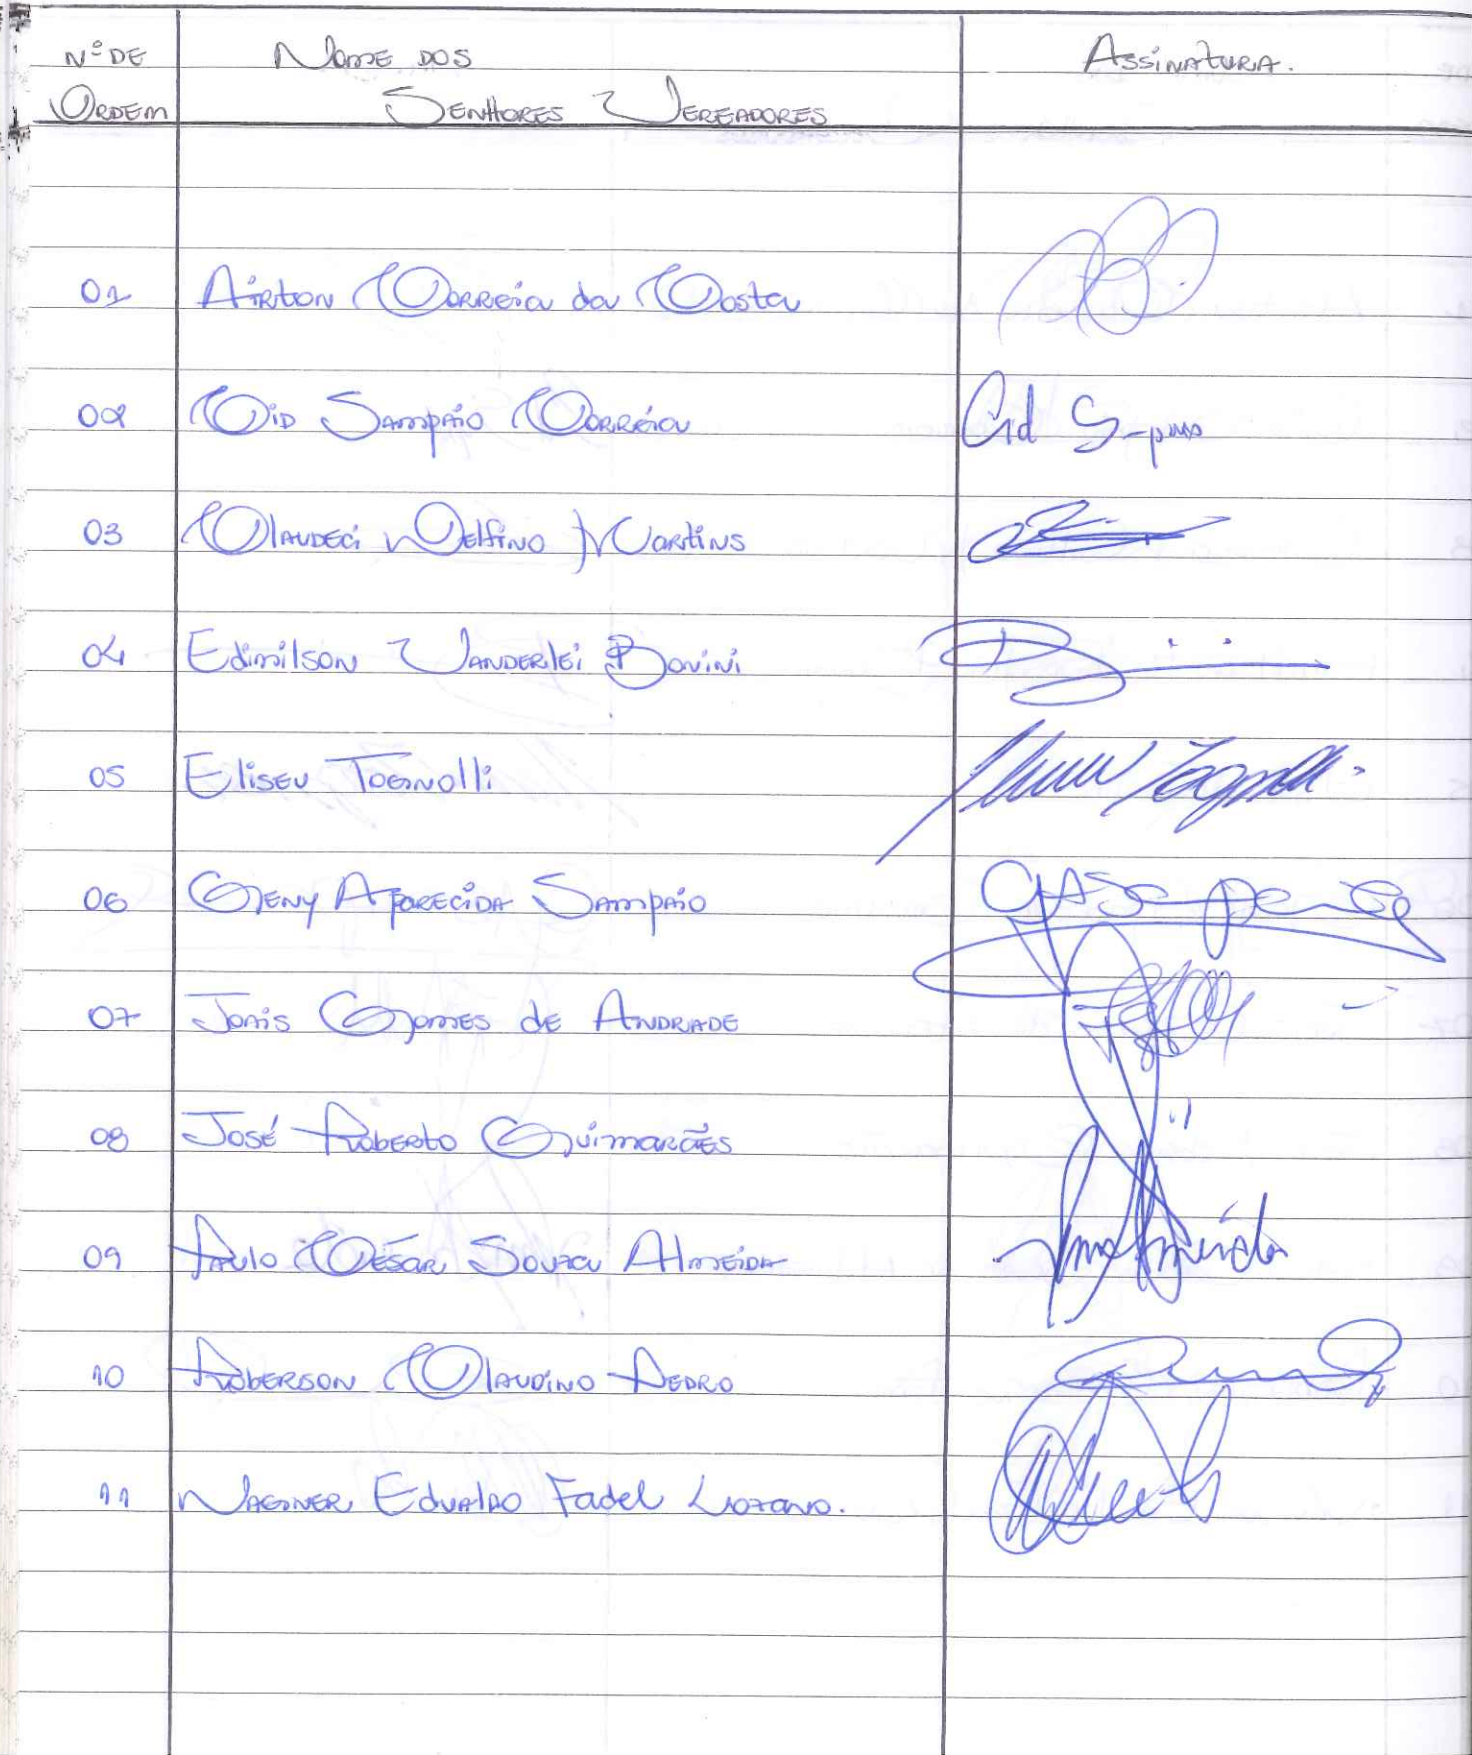 Nº DE Nome dos Assinatura.
Ordem Senhores Vereadores
01 Airton Correia da Costa
02 Cid Sampaio Correia Cid
03 Claudeci Delfino Martins
04 Edimilson Vanderlei Bovini
05 Eliseu Tognolli Tognolli
06 Geny Aparecida Sampaio
07 Jonis Gomes de Andrade
08 José Roberto Guimarães
09 Paulo César Souza Almeida Almeida
10 Roberson Claudino Pedro
11 Wagner Edualdo Fadel Lozano.